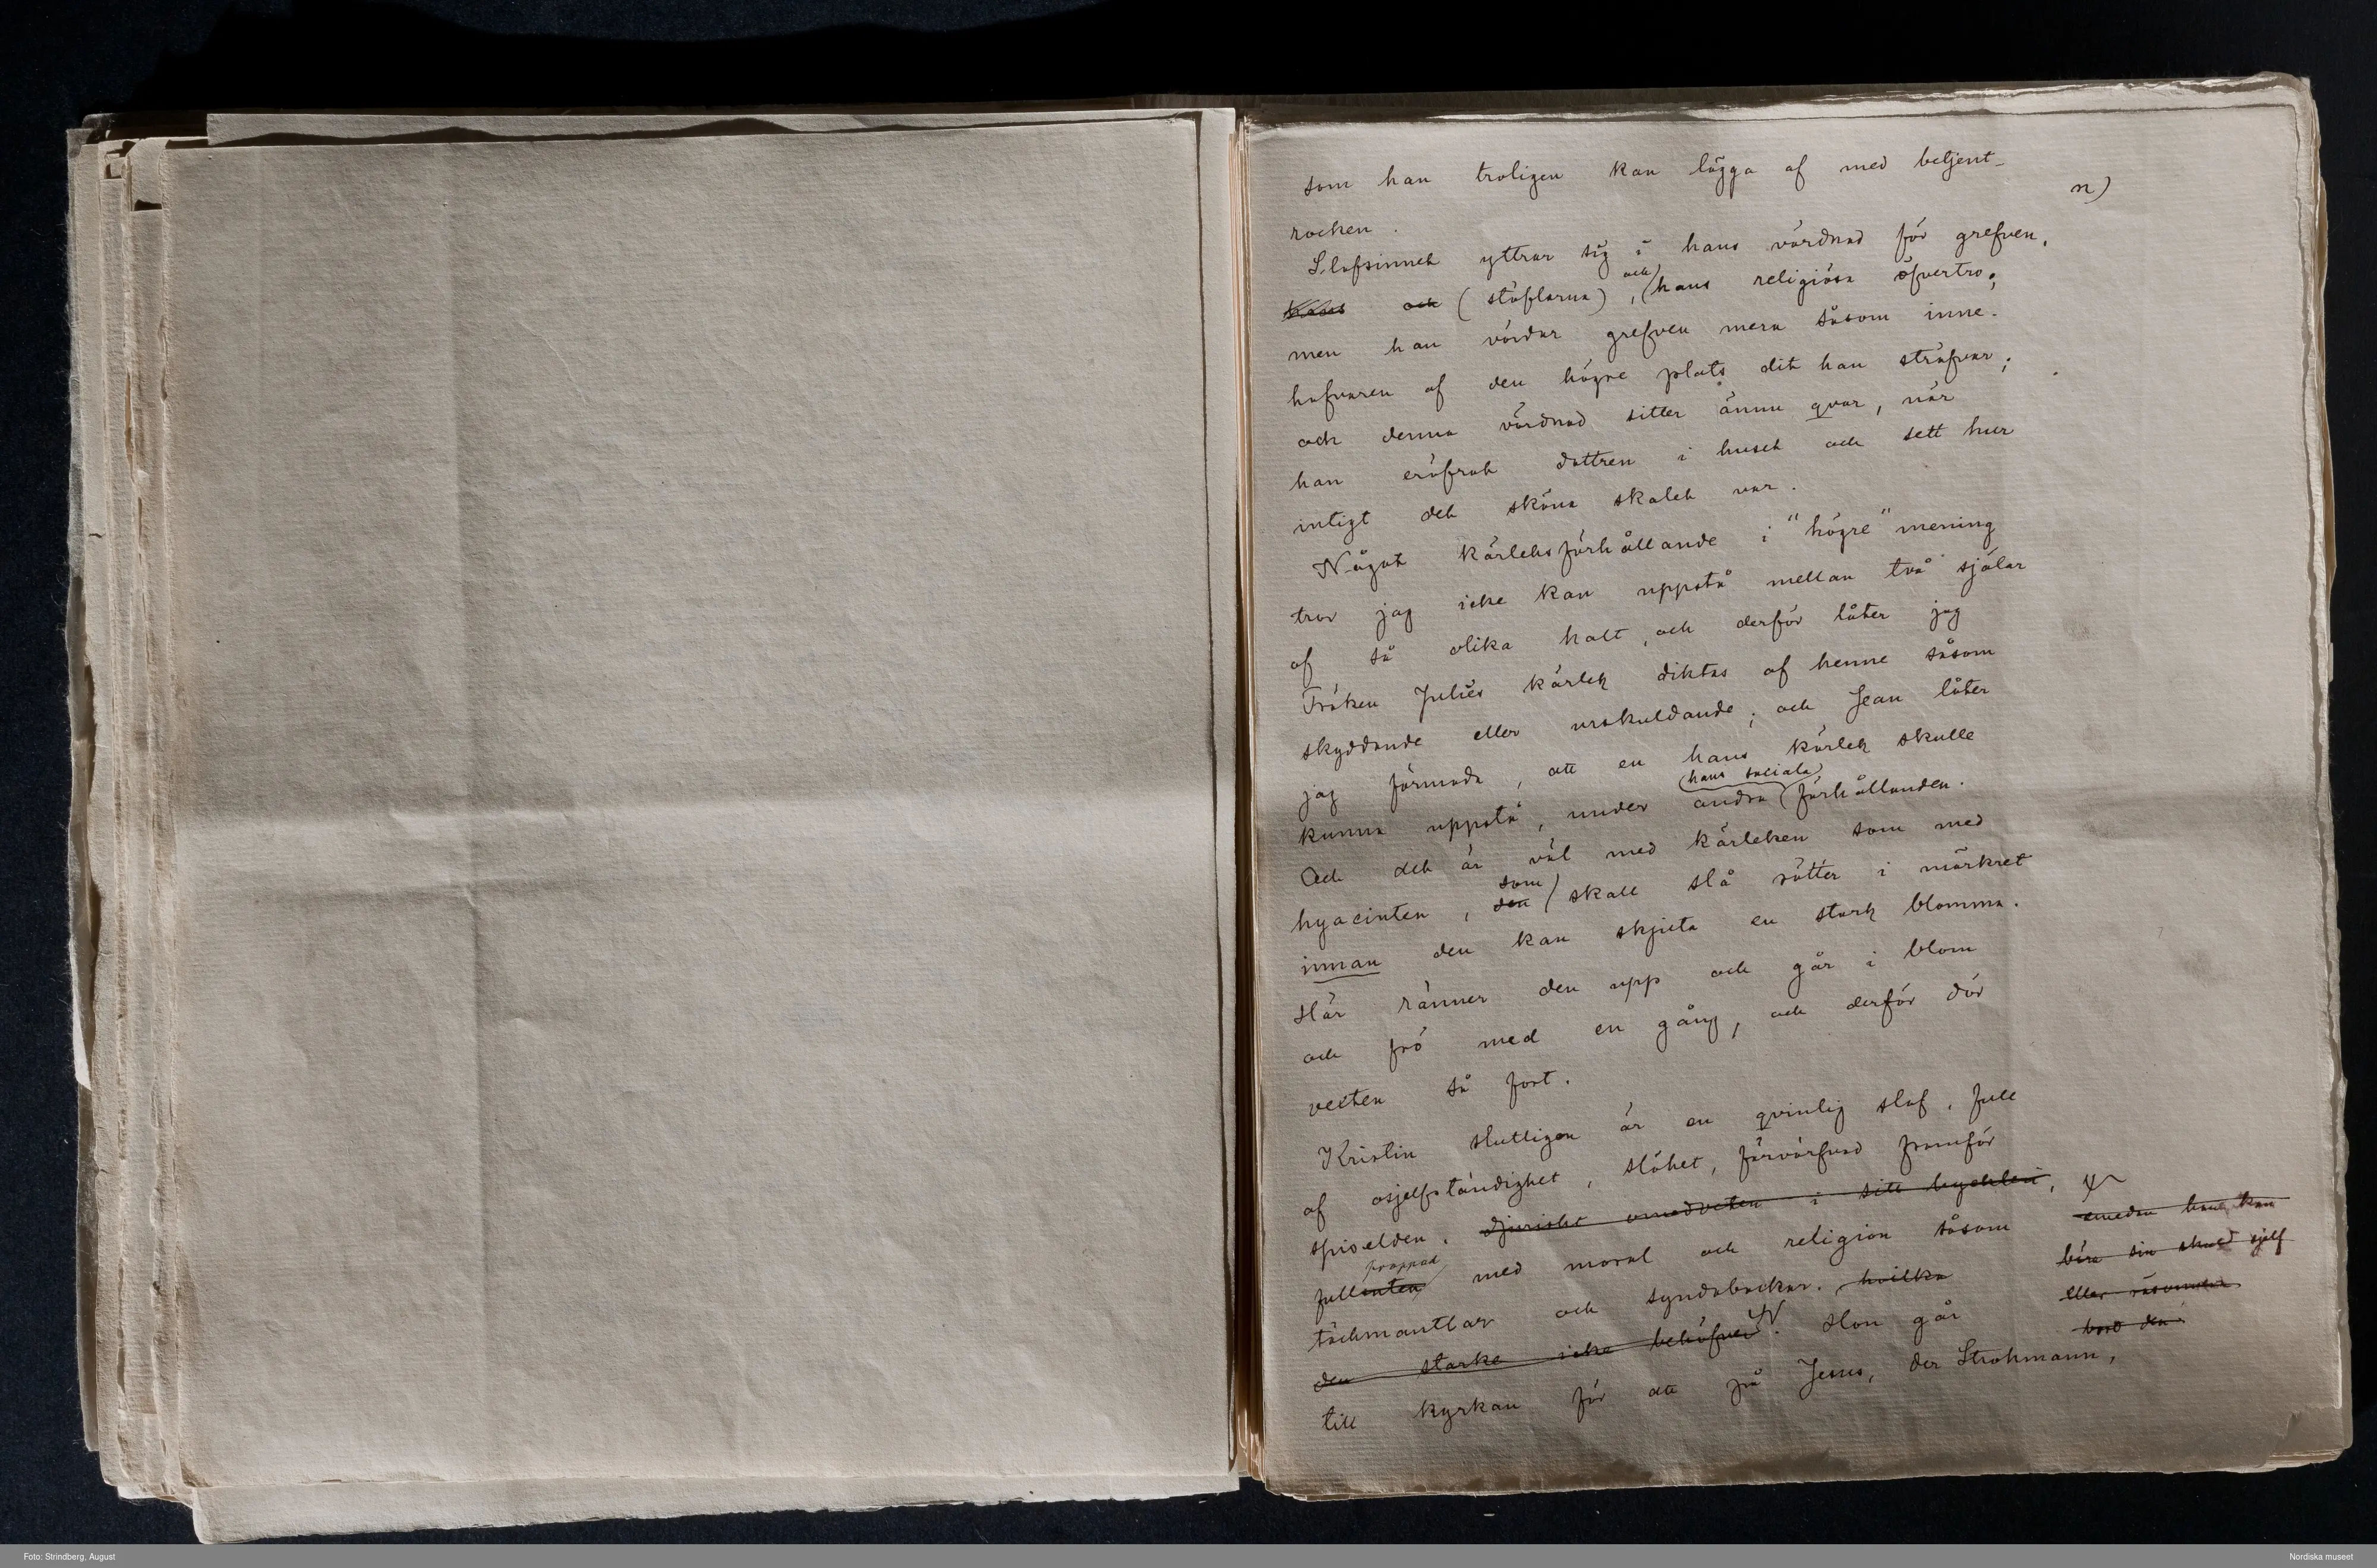 som han troligen kan lägga af med betjent-
n)
rocken.
Slafsinnet yttrar sig i hans vördnad för grefven,
och (stöflarna), och hans religiösa öfvertro;
men han vördar grefven mera såsom inne-
hafvaren af den högre plats dit han sträfvar;
och denna vördnad sitter ännu qvar, när
han eröfrat dottren i huset och sett hur
intigt det sköna skalet var.
Något kärleksförhållande i "högre" mening
tror jag icke kan uppstå mellan två själar
af så olika halt, och derför låter jag
Fröken Julies kärlek diktas af henne såsom
skyddande eller urskuldande; och Jean låter
jag förmoda, att en hans kärlek skulle
kunna uppstå, under andra hans sociala förhållanden.
Och det är väl med kärleken som med
hyacinten, den som skall slå rötter i mörkret
innan den kan skjuta en stark blomma.
Här ränner den upp och går i blom
och frö med en gång, och derför dör
vexten så fort.
Kristin slutligen är en qvinlig slaf, full
af osjelfständighet, slöhet, förvärfvad framför
spiselden, djuriskt omedveten i sitt hyckleri,
fullproppad med moral och religion såsom
täckmantlar och syndabockar. hvilka
den starke icke behöfver. Hon går
till kyrkan för att på Jesus, der Strohmann,
emedan han kan
bära sin skuld sjelf
eller
bort den
Foto: Strindberg, August
Nordiska museet